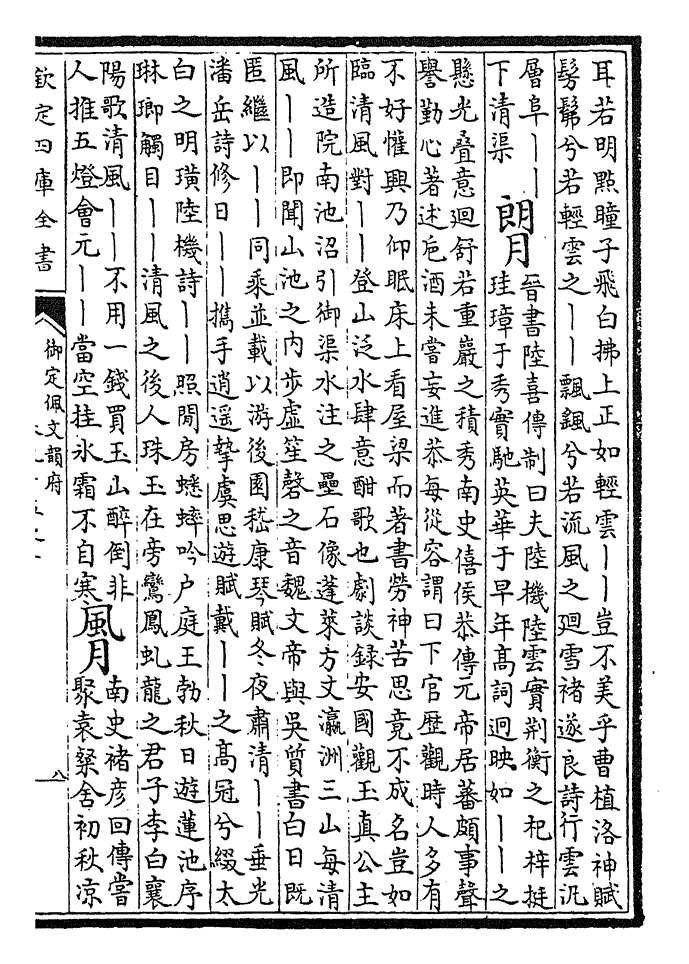 耳若明㸃瞳子飛白拂上正如輕雲丨丨豈不美乎曹植洛神賦
髣髴兮若輕雲之丨丨飄颻兮若流風之迴雪褚遂良詩行雲汎
層阜丨丨
下清渠
朗月
晉書陸喜傳制曰夫陸機陸雲實荆衡之杞梓挺
珪璋于秀實馳英華于早年髙詞迥映如丨丨之
懸光疊意迴舒若重巖之積秀南史僖侯恭傳元帝居蕃頗事聲
譽勤心著述巵酒未嘗妄進恭每從容謂曰下官歴觀時人多有
不好懽興乃仰眠床上看屋梁而著書勞神苦思竟不成名豈如
臨清風對丨丨登山泛水肆意酣歌也劇談録安國觀玉真公主
所造院南池沼引御渠水注之壘石像蓬萊方丈瀛洲三山每清
風丨丨即聞山池之内步虛笙磬之音魏文帝與吳質書白日既
匿繼以丨丨同乘並載以游後園嵇康琴賦冬夜肅清丨丨垂光
潘岳詩修日丨丨攜手逍遥摯虞思遊賦戴丨丨之髙冠兮綴太
白之明璜陸機詩丨丨照閒房蟋蟀吟户庭王勃秋日遊蓮池序
琳瑯觸目丨丨清風之後人珠玉在旁鸞鳳虬龍之君子李白襄
陽歌清風丨丨不用一錢買玉山醉倒非
人推五燈會元丨丨當空挂氷霜不自寒
風月
南史褚彦回傳嘗
聚袁粲舍初秋凉
欽定四庫全書
御定佩文韻府
八